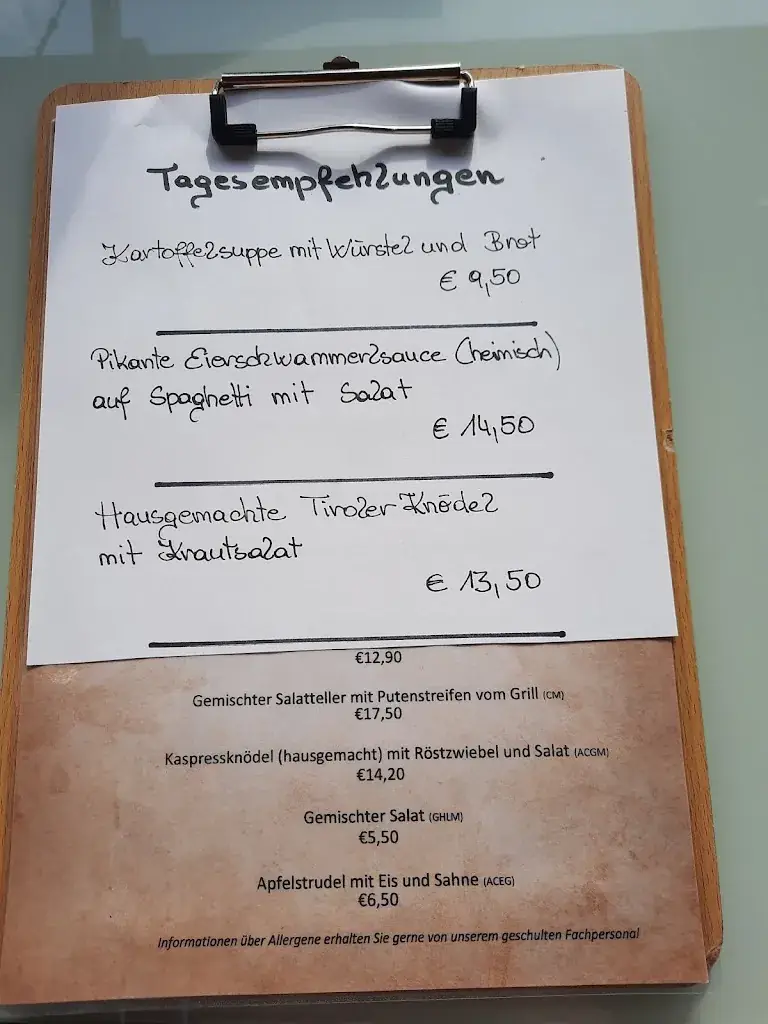 Tagesempfehlungen
Kartoffelsuppe mit Würstel und Brot
€ 9,50
Pikante Eierschwammerlsauce (heimisch)
auf Spaghetti mit Salat
€ 14,50
Hausgemachte Tiroler Knödel
mit Krautsalat
€ 13,50
€12,90
Gemischter Salatteller mit Putenstreifen vom Grill (CM)
€17,50
Kaspressknödel (hausgemacht) mit Röstzwiebel und Salat (ACGM)
€14,20
Gemischter Salat (GHLM)
€5,50
Apfelstrudel mit Eis und Sahne (ACEG)
€6,50
Informationen über Allergene erhalten Sie gerne von unserem geschulten Fachpersonal